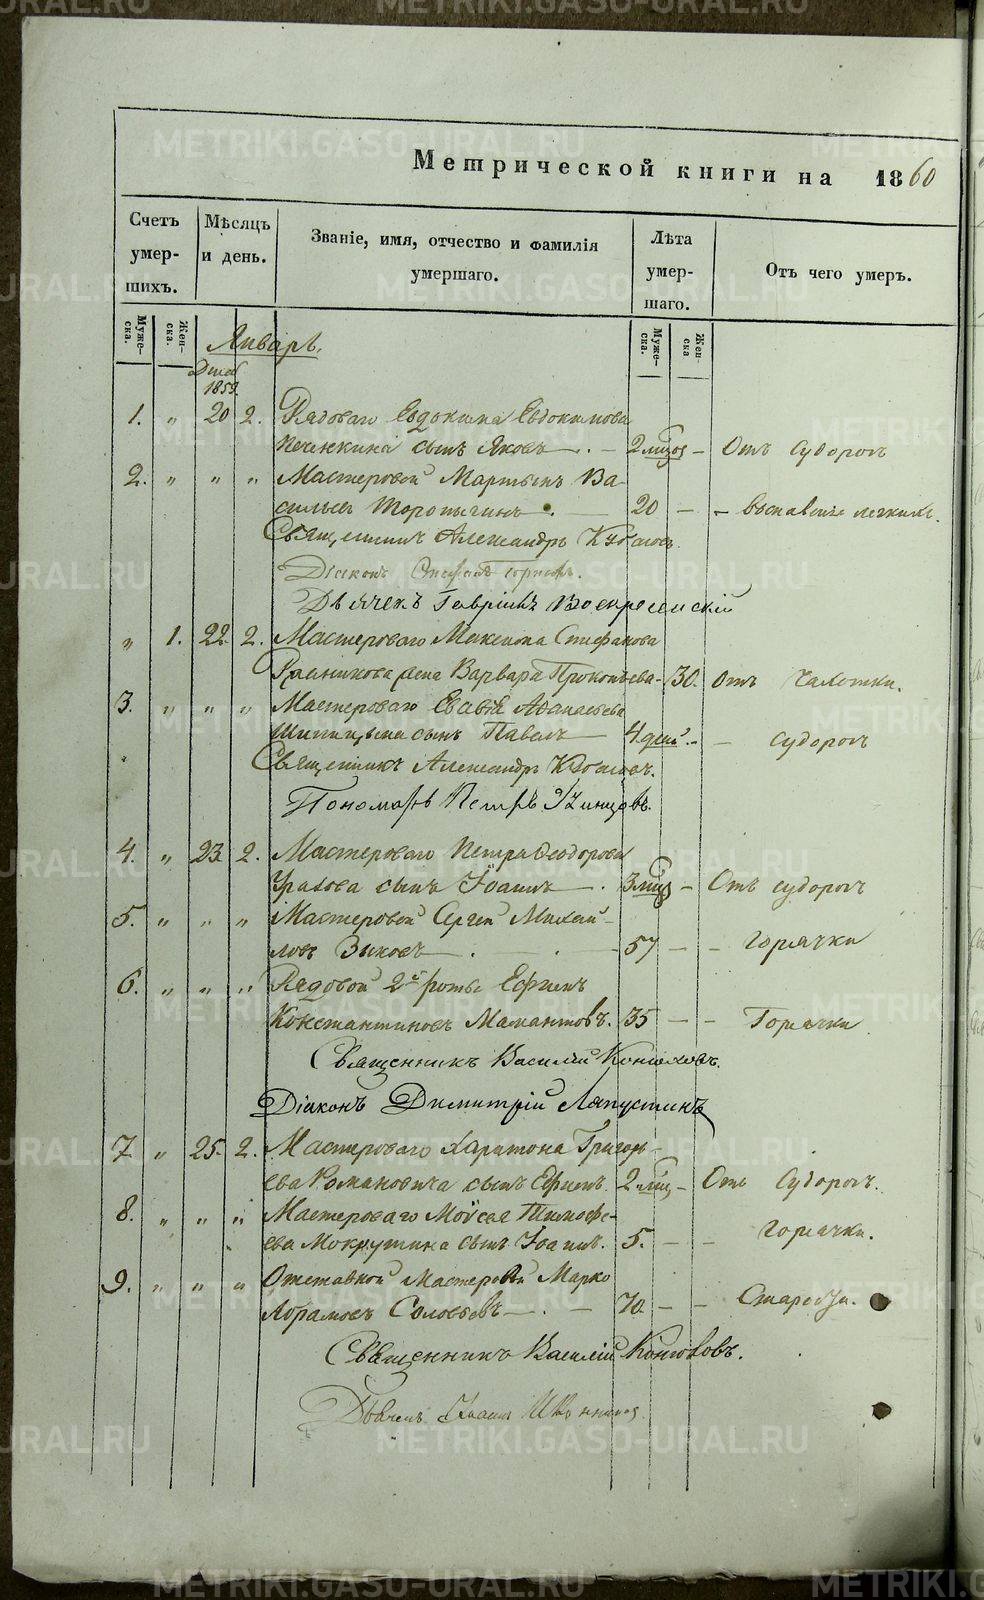 Метрической книги на 1860
Счетъ умершихъ.
Мѣсяцъ и день.
Званіе, имя, отчество и фамилія умершаго.
Лѣта умершаго.
Отъ чего умеръ.
Мужеска.
Женска.
Мужеска.
Женска
Январь.
Декаб
1859.
1. " 20 2. Рядоваго Евдокима Евдокимова
сынъ Яковъ 2 мѣсяц Отъ судорогъ
2. " " " Мастеровой Мартынъ Ва-
сильевъ Торопыгинъ 20 легкихъ.
Священникъ Александръ
Діаконъ
Дьячекъ Гаврiилъ Воскресенскiй
" 1. 22 2. Мастероваго Максима Стефанова
жена Варвара Прокопьева 30. Отъ чахотки.
3. " " " Мастероваго Аѳанасьева
сынъ Павелъ 4 дней судорогъ
Священникъ Александръ
Пономарь Петръ
4. " 23. 2. Мастероваго Петра Ѳеодорова
сынъ Іоаннъ 3 мѣс Отъ судорогъ
5. " " " Мастеровой Сергей Михай-
ловъ Зыковъ 57 горячки
6. " " " Рядовой 2й роты Ефимъ
Константиновъ Мамантовъ. 35 Горячки
Священникъ Василій Конюховъ.
Діаконъ Димитрій Лапустинъ
7. " 25. 2. Мастероваго Харитона Григорь-
ева Романовича сынъ Ефимъ 2 мѣс Отъ Судорогъ.
8. " " " Мастероваго Моѵсея Тимофе-
ева Мокрушина сынъ Іоаннъ. 5. горячки.
9. " " " Отставной Мастеровой Марко
Абрамовъ Соловьевъ 70. Старости.
Священникъ Василій Конюховъ.
Дьячекъ Іоаннъ
METRIKI.GASO-URAL.RU